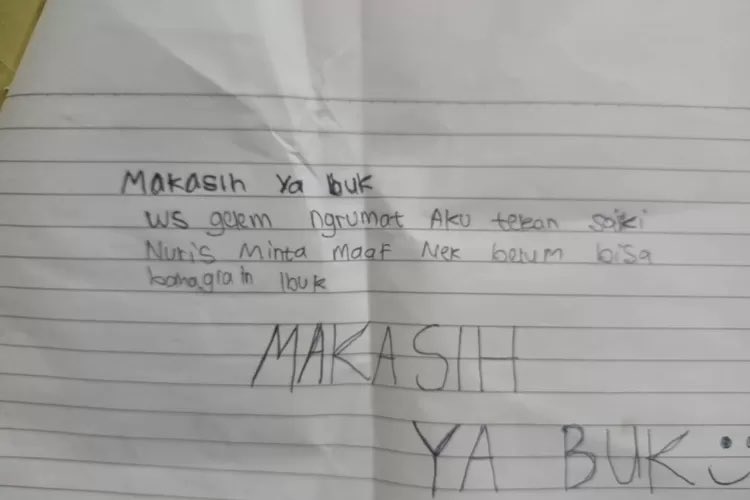 Makasih Ya buk
ws gelem ngrumat Aku tekan saiki
Nuris Minta maaf Nek belum bisa
bahagiain Ibuk
MAKASIH
YA BUK :)